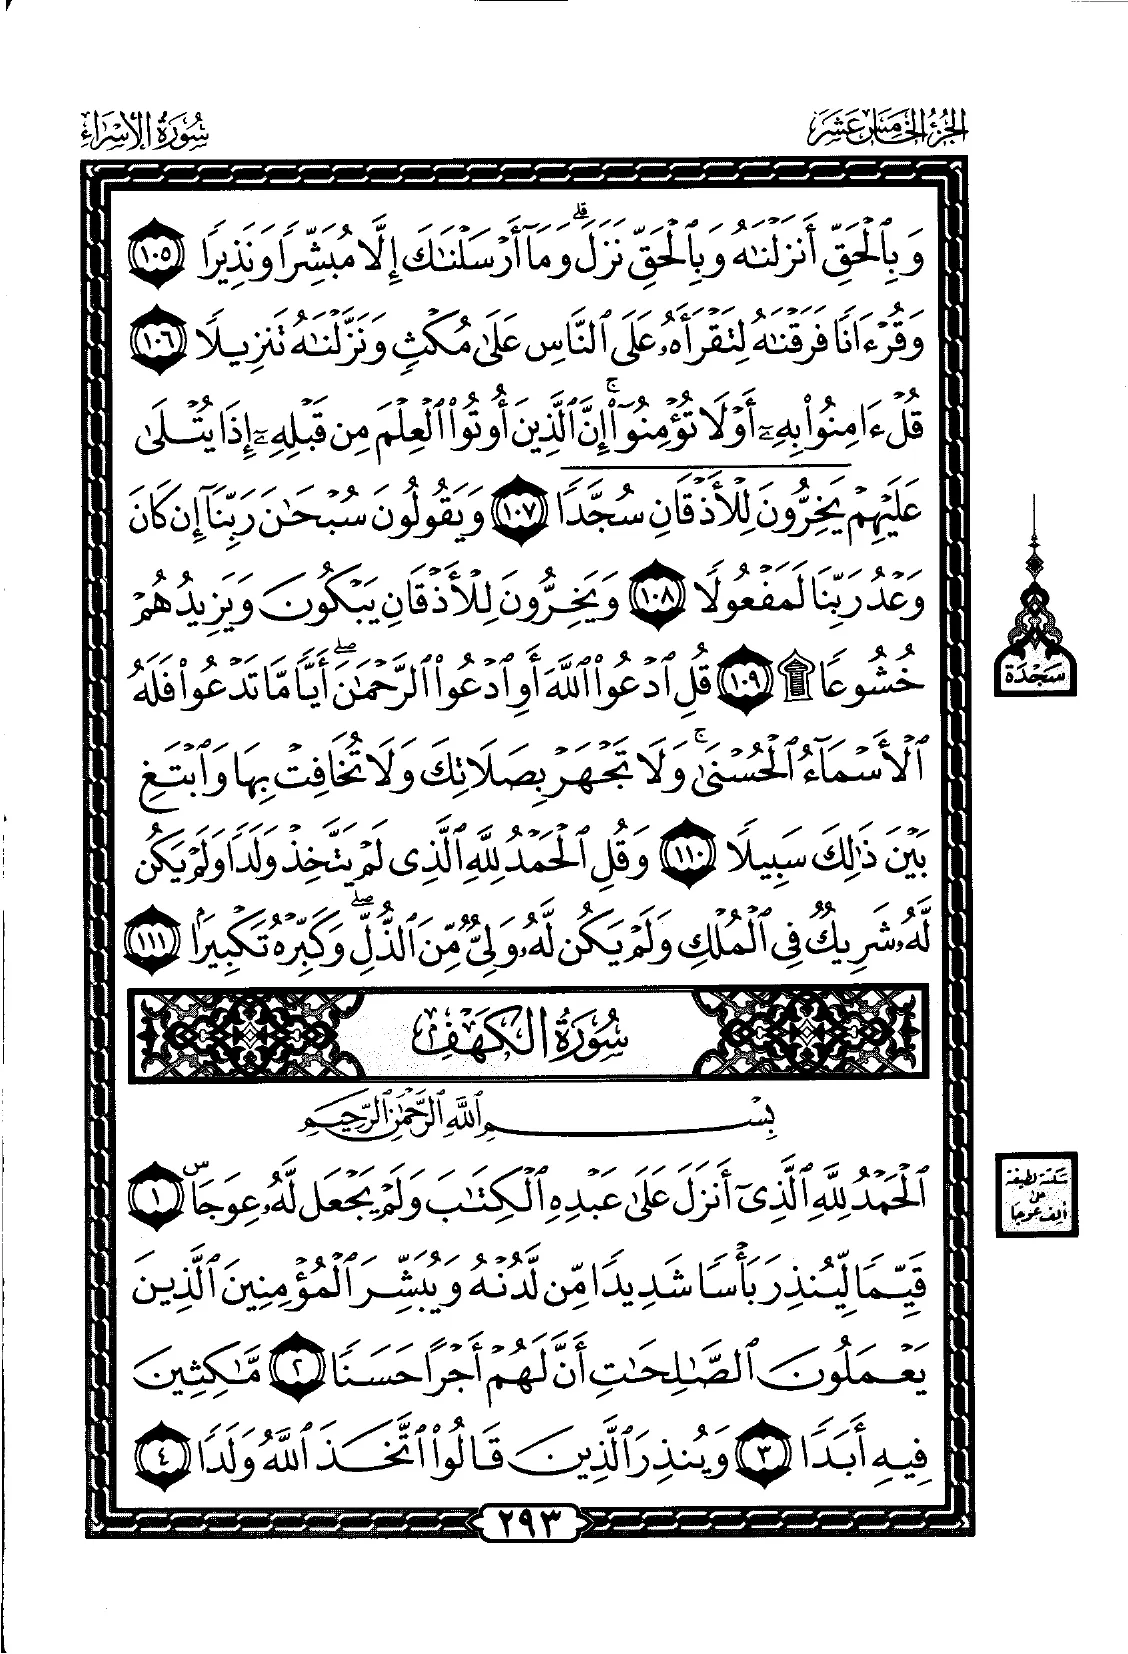 الجزء الخامس عشر
سورة الإسراء
وَبِٱلْحَقِّ أَنزَلْنَٰهُ وَبِٱلْحَقِّ نَزَلَ ۗ وَمَآ أَرْسَلْنَٰكَ إِلَّا مُبَشِّرًا وَنَذِيرًا ١٠٥
وَقُرْءَانًا فَرَقْنَٰهُ لِتَقْرَأَهُۥ عَلَى ٱلنَّاسِ عَلَىٰ مُكْثٍ وَنَزَّلْنَٰهُ تَنزِيلًا ١٠٦
قُلْ ءَامِنُوا۟ بِهِۦٓ أَوْ لَا تُؤْمِنُوٓا۟ ۚ إِنَّ ٱلَّذِينَ أُوتُوا۟ ٱلْعِلْمَ مِن قَبْلِهِۦٓ إِذَا يُتْلَىٰ
عَلَيْهِمْ يَخِرُّونَ لِلْأَذْقَانِ سُجَّدًا ١٠٧ وَيَقُولُونَ سُبْحَٰنَ رَبِّنَآ إِن كَانَ
وَعْدُ رَبِّنَا لَمَفْعُولًا ١٠٨ وَيَخِرُّونَ لِلْأَذْقَانِ يَبْكُونَ وَيَزِيدُهُمْ
خُشُوعًا ۩ ١٠٩ قُلِ ٱدْعُوا۟ ٱللَّهَ أَوِ ٱدْعُوا۟ ٱلرَّحْمَٰنَ ۖ أَيًّا مَّا تَدْعُوا۟ فَلَهُ
ٱلْأَسْمَآءُ ٱلْحُسْنَىٰ ۚ وَلَا تَجْهَرْ بِصَلَاتِكَ وَلَا تُخَافِتْ بِهَا وَٱبْتَغِ
بَيْنَ ذَٰلِكَ سَبِيلًا ١١٠ وَقُلِ ٱلْحَمْدُ لِلَّهِ ٱلَّذِى لَمْ يَتَّخِذْ وَلَدًا وَلَمْ يَكُن
لَّهُۥ شَرِيكٌ فِى ٱلْمُلْكِ وَلَمْ يَكُن لَّهُۥ وَلِىٌّ مِّنَ ٱلذُّلِّ ۖ وَكَبِّرْهُ تَكْبِيرًۢا ١١١
سُورَةُ الكَهْفِ
بِسْمِ ٱللَّهِ ٱلرَّحْمَٰنِ ٱلرَّحِيمِ
ٱلْحَمْدُ لِلَّهِ ٱلَّذِىٓ أَنزَلَ عَلَىٰ عَبْدِهِ ٱلْكِتَٰبَ وَلَمْ يَجْعَل لَّهُۥ عِوَجَاۜ ١
قَيِّمًا لِّيُنذِرَ بَأْسًا شَدِيدًا مِّن لَّدُنْهُ وَيُبَشِّرَ ٱلْمُؤْمِنِينَ ٱلَّذِينَ
يَعْمَلُونَ ٱلصَّٰلِحَٰتِ أَنَّ لَهُمْ أَجْرًا حَسَنًا ٢ مَّٰكِثِينَ
فِيهِ أَبَدًا ٣ وَيُنذِرَ ٱلَّذِينَ قَالُوا۟ ٱتَّخَذَ ٱللَّهُ وَلَدًا ٤
٢٩٣
سَجْدَة
سكتة لطيفة
على
ألف عوجا